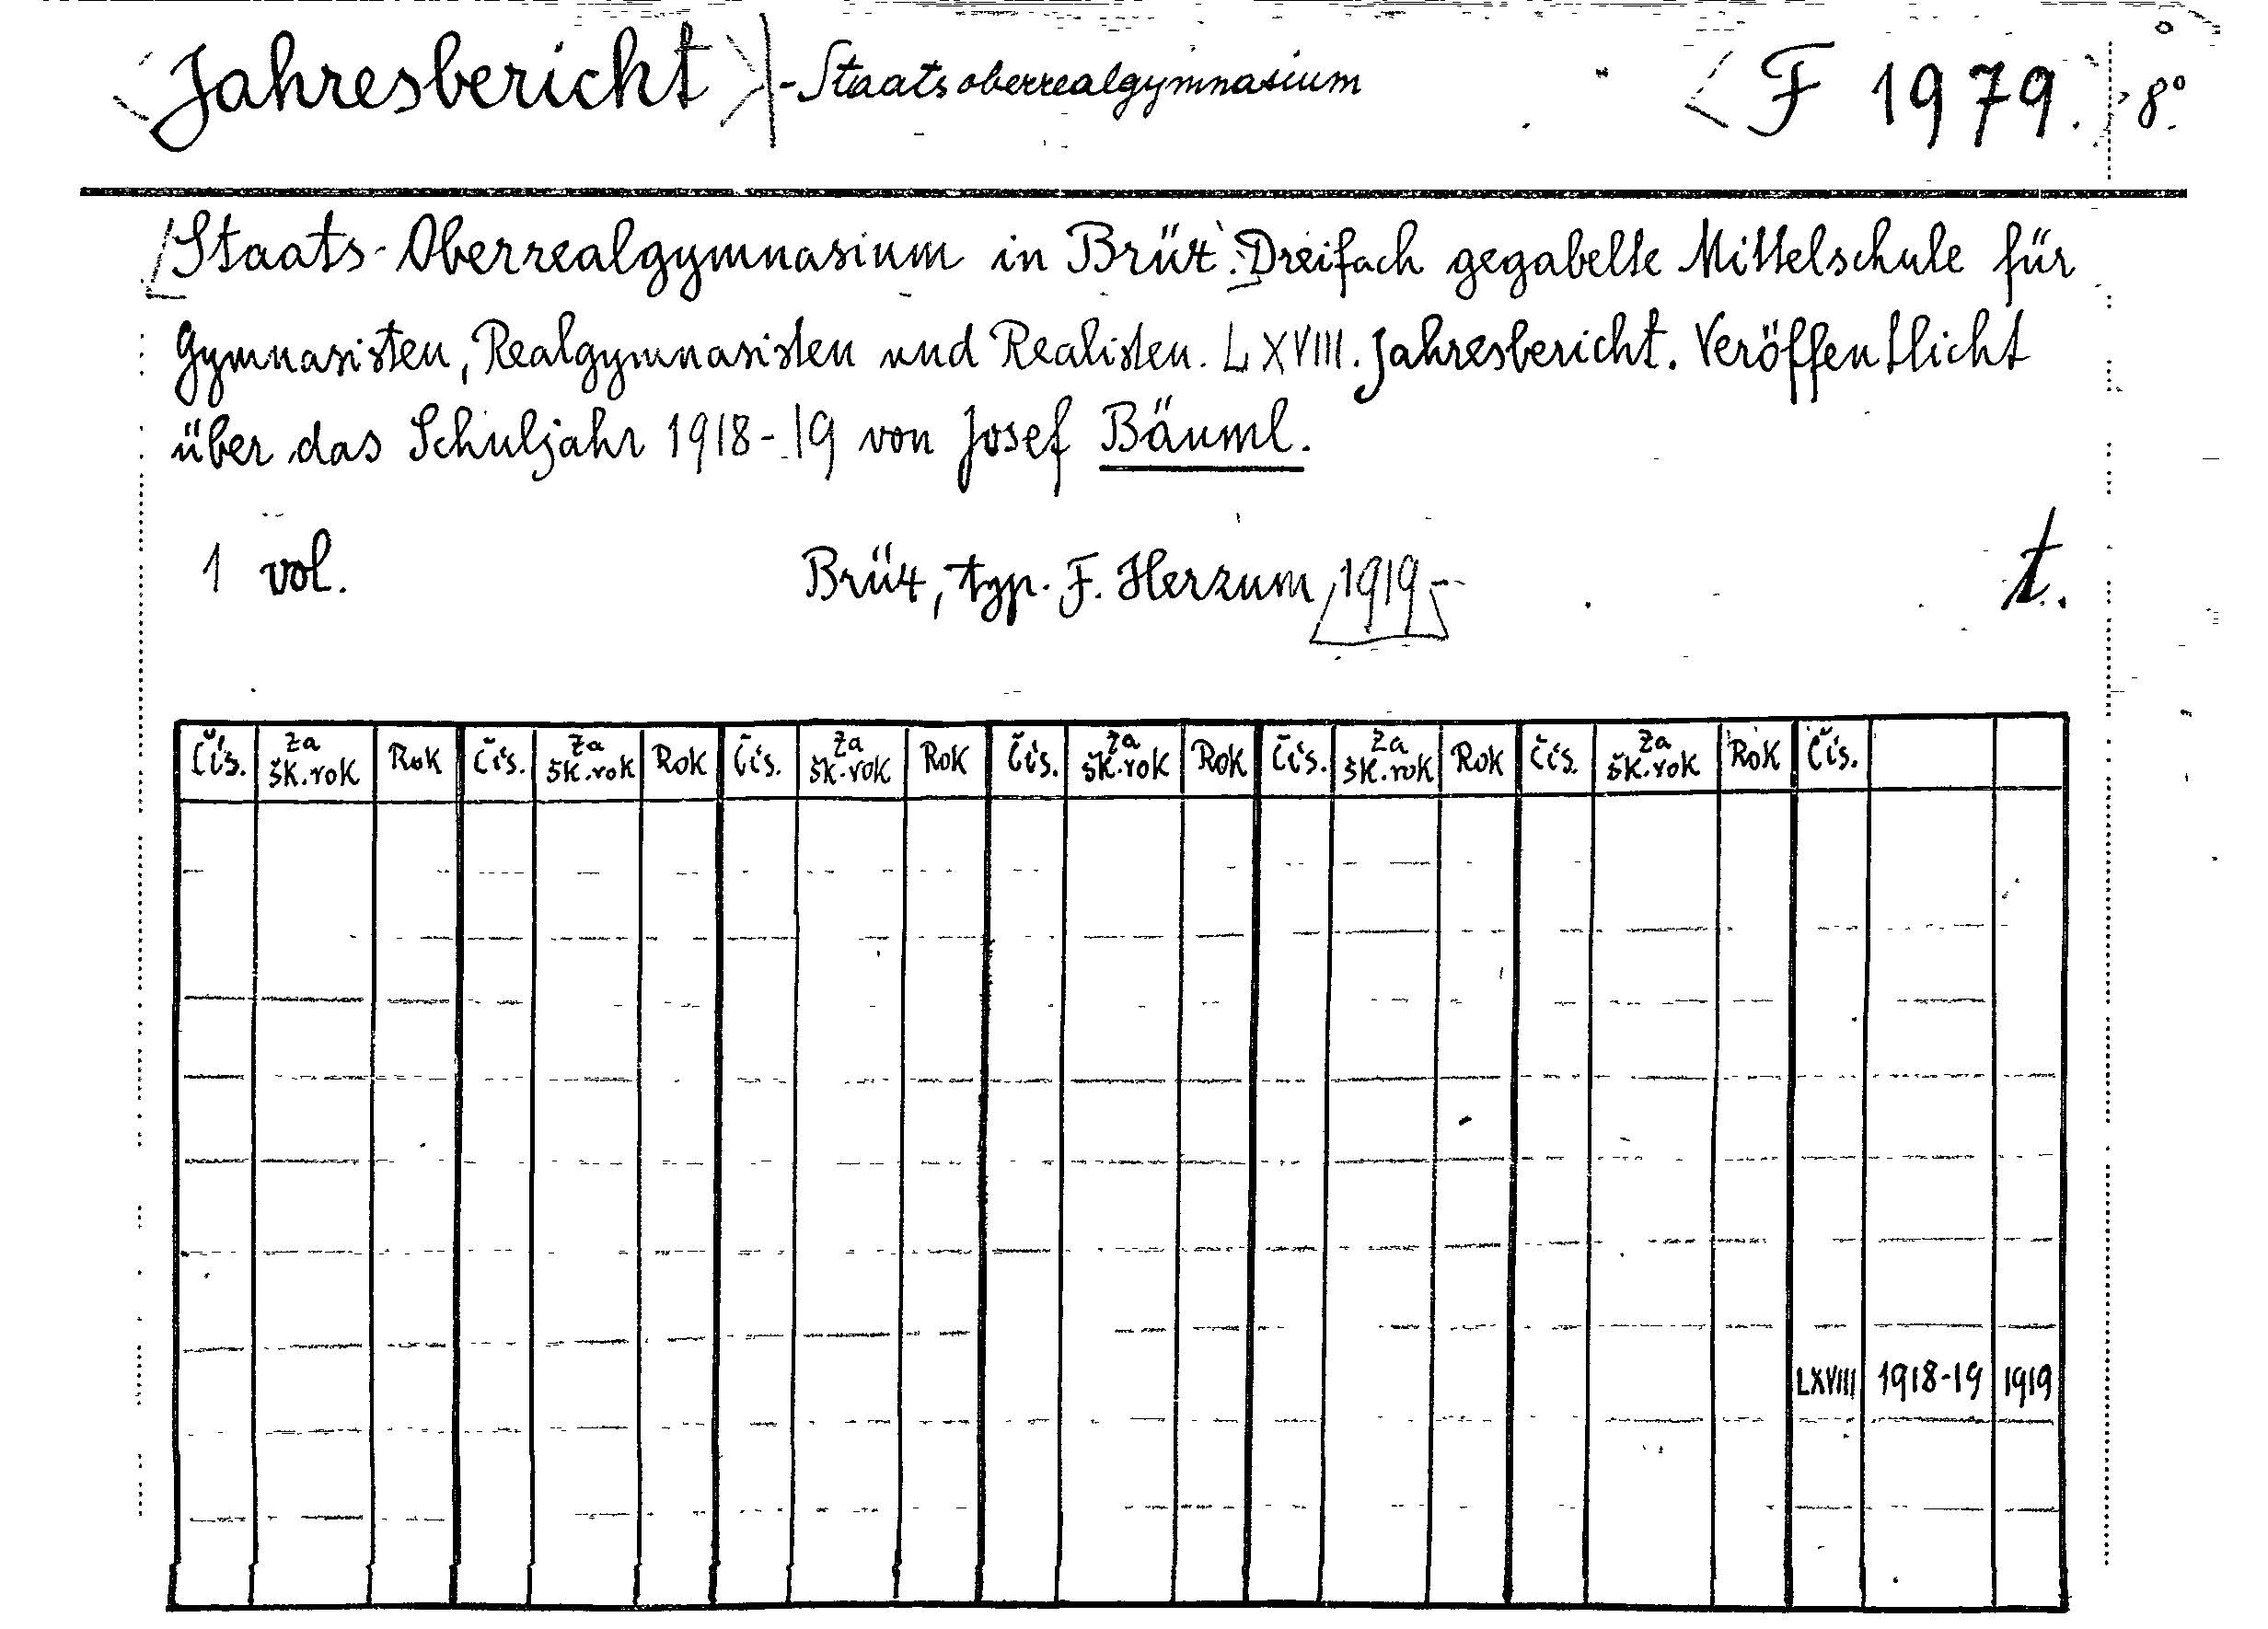 Jahresbericht - Staatsoberrealgymnasium F 1979. 8°
Staats-Oberrealgymnasium in Brüx. Dreifach gegabelte Mittelschule für
Gymnasisten, Realgymnasisten und Realisten. LXVIII. Jahresbericht. Veröffentlicht
über das Schuljahr 1918-19 von Josef Bäuml.
1 vol. Brüx, typ. F. Herzum 1919- t.
Čís. za šk.rok Rok Čís. za šk.rok Rok Čís. za šk.rok Rok Čís. za šk.rok Rok Čís. za šk.rok Rok Čís. za šk.rok Rok Čís.
LXVIII 1918-19 1919